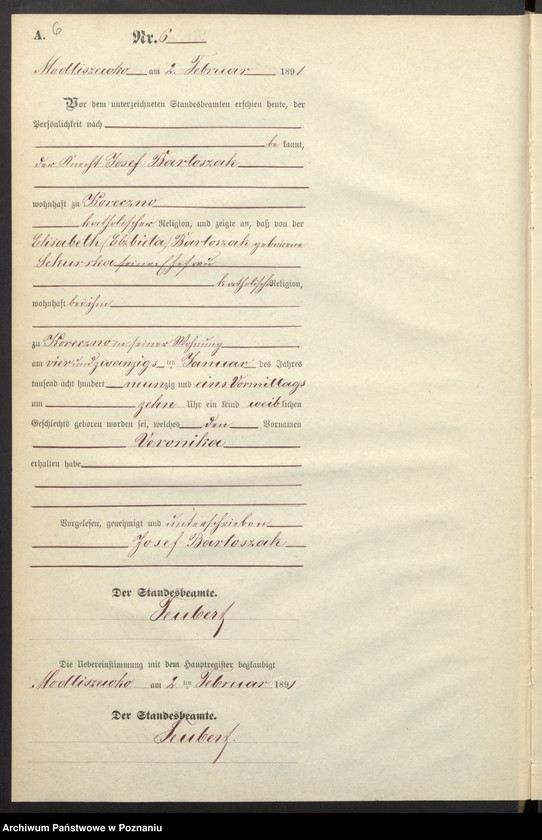 A. 6
Nr. 6
Modliszewko am 2 Februar 1891
Vor dem unterzeichneten Standesbeamten erschien heute, der
Persönlichkeit nach
be kannt,
der Knecht Josef Bartoszak
wohnhaft zu Koreczno
katholischer Religion, und zeigte an, daß von der
Elisabeth /Elzbieta/ Bartoszak geborene
Sekurska seiner Ehefrau
katholischer Religion,
wohnhaft bei ihm
zu Koreczno in seiner Wohnung
am vierundzwanzigs ten Januar des Jahres
tausend acht hundert neunzig und eins Vormittags
um zehn Uhr ein Kind weiblichen
Geschlechts geboren worden sei, welches den Vornamen
Veronika
erhalten habe
Vorgelesen, genehmigt und unterschrieben
Josef Bartoszak
Der Standesbeamte.
Teubert
Die Uebereinstimmung mit dem Hauptregister beglaubigt
Modliszewko am 2 ten Februar 1891
Der Standesbeamte.
Teubert.
Archiwum Państwowe w Poznaniu